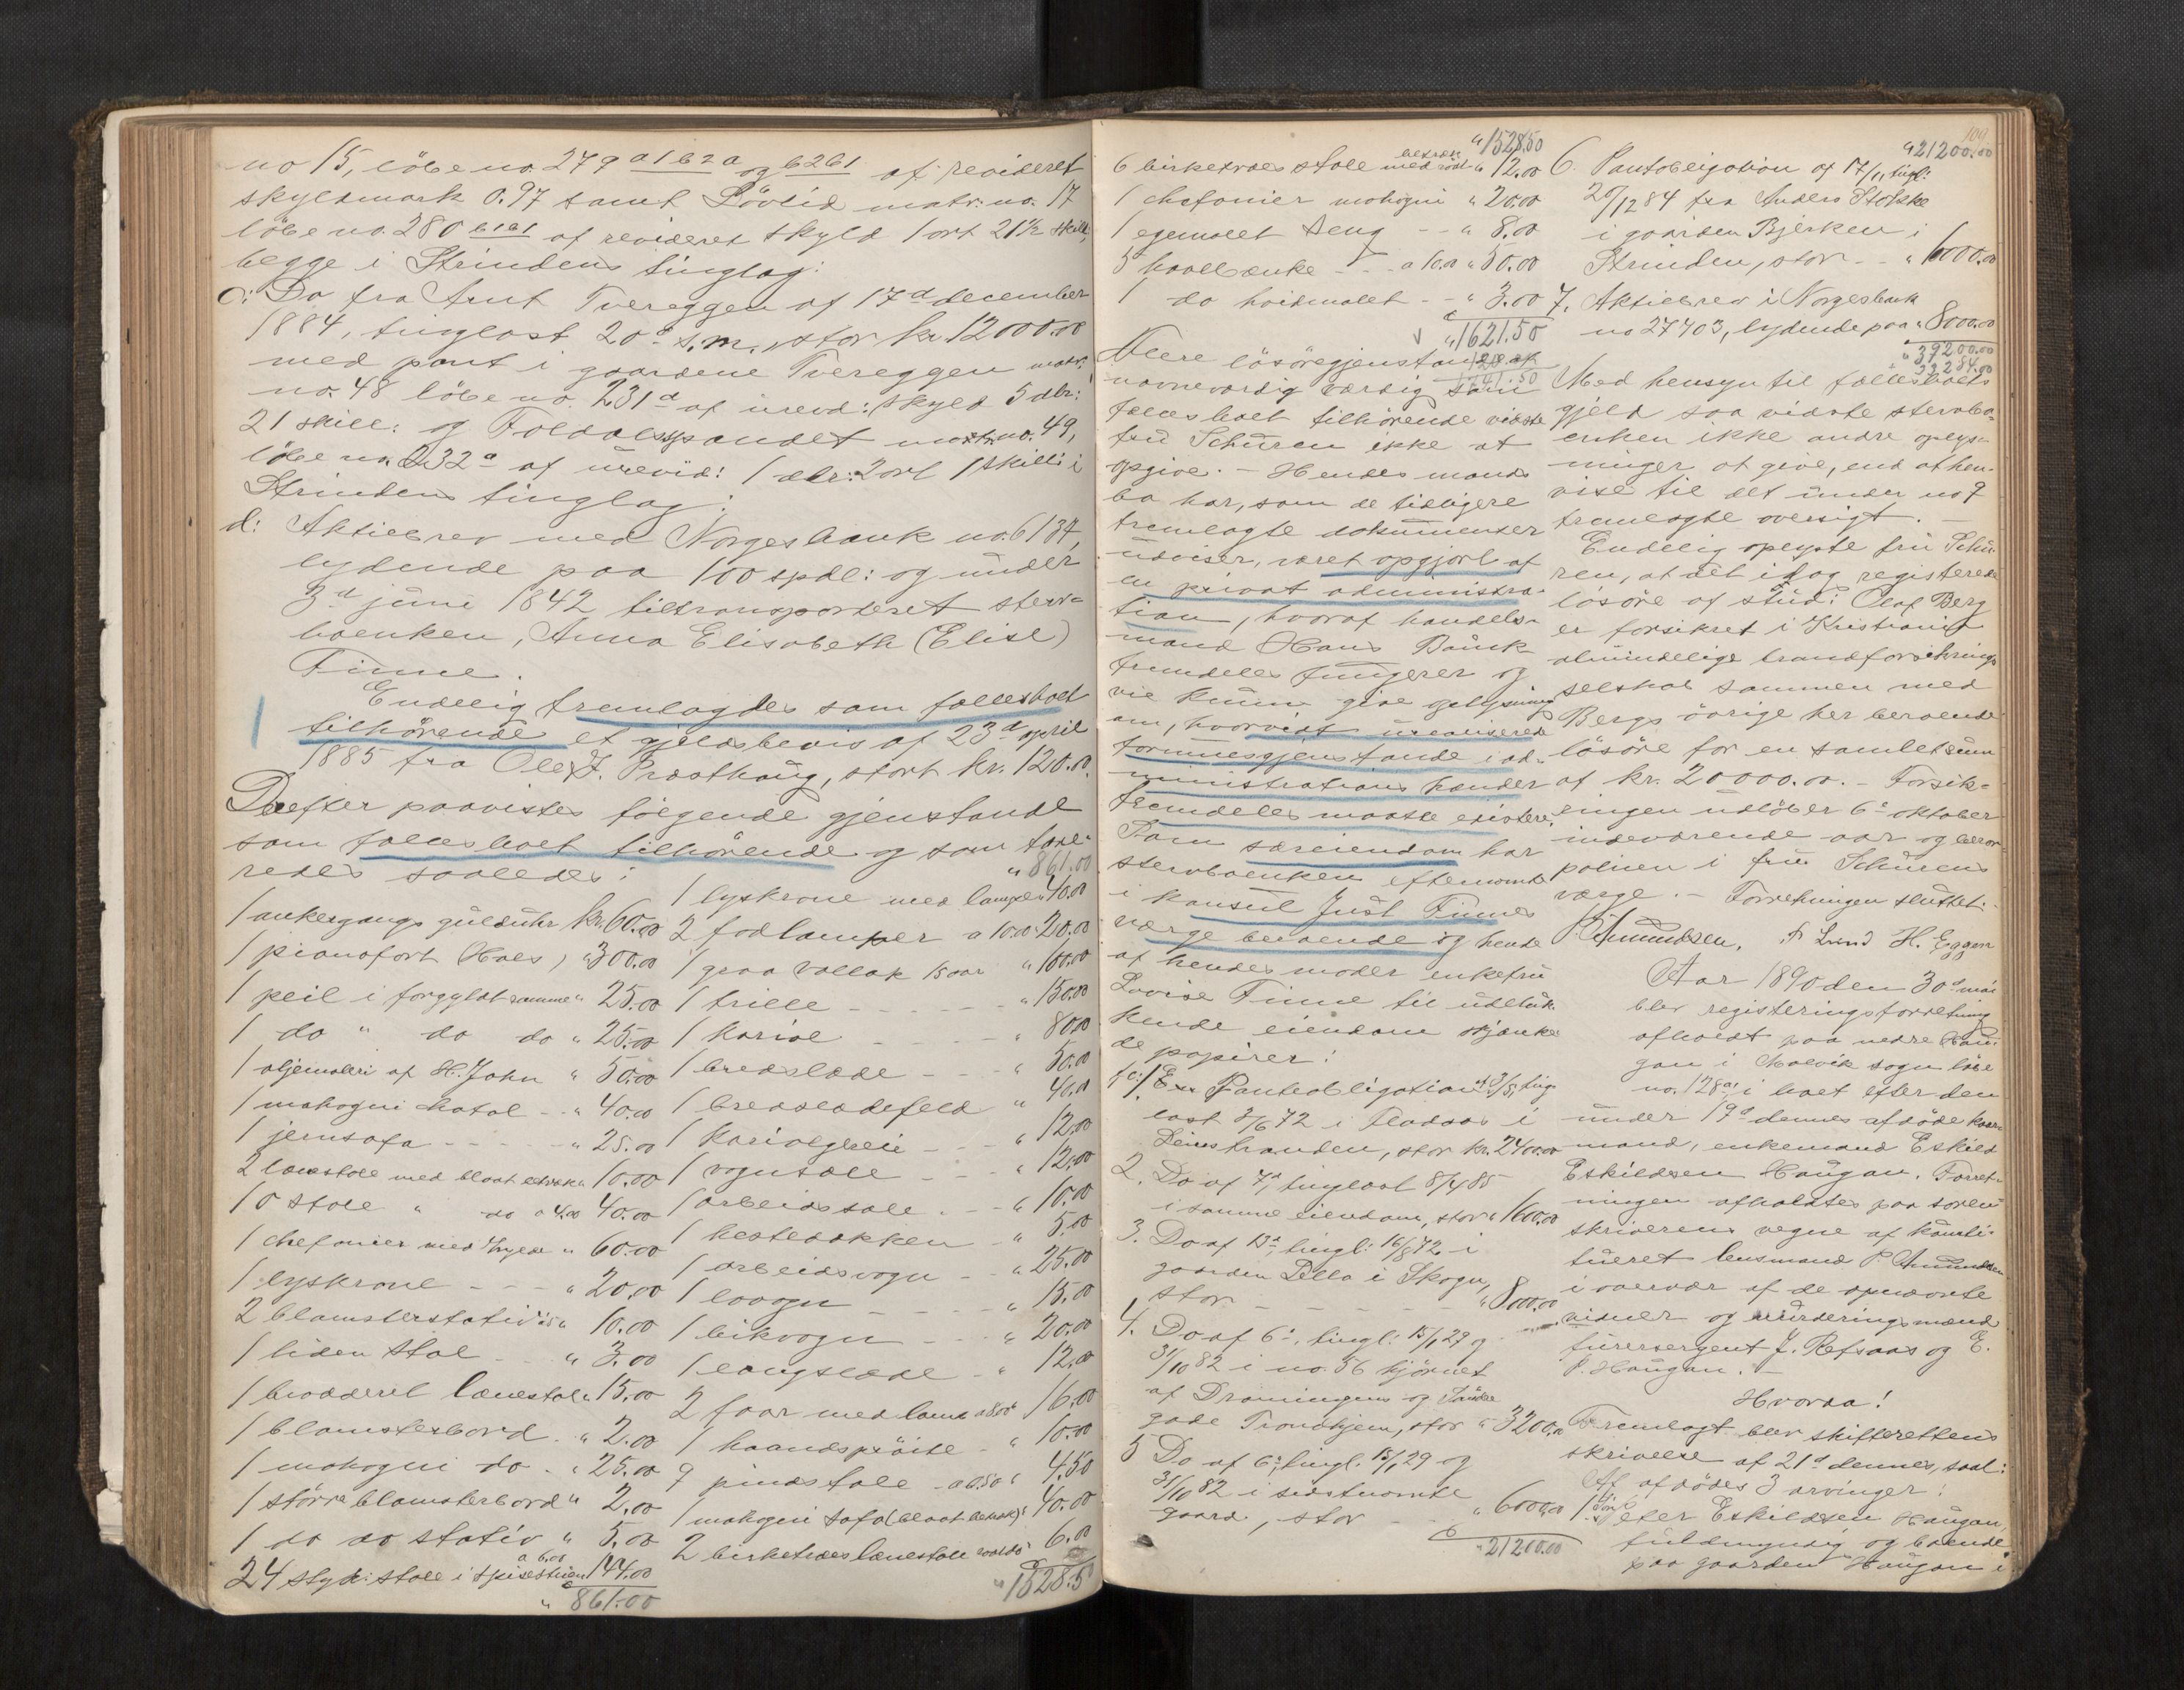 no 15, löbe no. 279 a1b2a og b2b1 af revideret
skyldmark 0.97 samt Lövlid matr. no. 17
löbe no. 280 b1a1 af revideret skyld 1 ort 21 1/2 skill,
begge i Strindens tinglag:
c: Do fra Arnt Tvereggen af 17d december
1884, tinglæst 20d s.m., stor kr. 12000.00
med pant i gaardene Tvereggen matr:
no. 48 löbe no. 231a af urevd: skyld 5 dlr:
21 skill: og Foldalspandet matr. no. 49,
löbe no. 232a af urevid: 1 dlr: 2 ort 1 skill: i
Strindens tinglag:
d: Aktiebrev med Norges bank no. 6134,
lydende paa 100 spdl: og under
3d juni 1842 tiltransporteret sterv-
boenken, Anna Elisabeth (Elise)
Finne.
Endelig fremlagdes som fællesboet
tilhörende et gjeldsbevis af 23d april
1885 fra Ole J. Præsthaug, stort kr. 120.00.
Derefter paavistes følgende gjenstande
som fællesboet tilhörende og som taxe-
redes saaledes:
1 ankergangs guldur kr. 60.00
1 pianofort (Hals) " 300.00
1 speil i forgyldt ramme " 25.00
1 do " do do " 25.00
1 oljemaleri af H. John " 50.00
1 mahogni chatol - " 40.00
1 jernsofa - - - - " 25.00
2 lænestole med blaat betræk " 10.00
10 stole " do a 4.00 40.00
1 chefonier med hylde " 60.00
1 lyskrone - - - " 20.00
2 blomsterstativ a 5 " 10.00
1 liden stol - - " 3.00
1 broderet lænestol " 15.00
1 blomsterbord - " 2.00
1 mahogni do - " 25.00
1 större blomsterbord " 2.00
1 do do stativ " 5.00
24 styk: stole i spisestuen a 6.00 144.00
" 861.00
" 861.00
1 lyskrone med lamper " 40.00
2 fodlamper a 10.00 20.00
1 graa vallak 15 aar " 100.00
1 trille - - - - " 150.00
1 kariol - - - - " 80.00
1 bredslæde - - - " 50.00
1 bredslædefeld " 40.00
1 kariolgreie - - " 12.00
1 vognsæle - - " 12.00
1 arbeidssæle - - " 10.00
1 hestedækken - " 5.00
1 arbeidsvogn - - " 25.00
1 lovogn - - - - " 15.00
1 likvogn - - " 20.00
1 langslæde - " 12.00
2 faar med lam a 8.00 16.00
1 haandspröite - " 10.00
9 pindstole - a 0.50 " 4.50
1 mahogni sofa (blaat betræk) " 40.00
2 birketræes lænestole 6.00
" 1528.50
" 1528.50
6 birketræes stole med rödt betræk " 12.00
1 chefonier mahogni " 20.00
1 egemalet seng - - " 8.00
5 havebænke - - - a 10.00 " 50.00
1 do hvidmalet - - " 3.00
" 1621.50
120.00
1741.50
Flere lösöregjenstande af
nævneværdig værdi som
fællesboet tilhörende vidste
fru Schüren ikke at
opgive. - Hendes mands
bo har, som de tidligere
fremlagte dokumenter
udviser, været opgjort af
en privat administra-
tion, hvoraf handels-
mand Hans Bauck
fremdeles fungerer og
vil kunne give oplysning
om, hvorvidt urealiserede
formuesgjenstande i ad-
ministrationens hænder
fremdeles maatte existere.
Som særeiendom har
stervboenken efternævnte
i konsul Just Finnes
værge beroende og hende
af hendes moder enkefru
Lovise Finne til udeluk-
kende eiendom skjænke-
de papirer:
1. Panteobligation ting-
læst 3/6 72 i
Leinstranden, stor kr. 2400.00
2. Do af 7d, tinglæst 8/4 85
i samme eiendom, stor " 1600.00
3. Do af 13d, tingl: 16/8 72 i
gaarden Lello i Skogn,
stor - - - - - " 8000.00
4. Do af 6d, tingl: 15/1 29 og
31/10 82 i no. 56 hjörnet
af Dronningens og Söndre
gade Trondhjem, stor " 3200.00
5 Do af 6d, tingl. 15/1 29 og
31/10 82 i sidstnævnte
gaard, stor - - " 6000.00
" 21200.00
100
" 21200.00
6. Pantobligation af 17/11, tingl:
20/12 84 fra Anders Stokke
i gaarden Bjerken i
Strinden, stor - - " 6000.00
7. Aktiebrev i Norges bank
no 27403, lydende paa " 8000.00
" 39200.00
Med hensyn til fællesboets
gjeld saa vidste stervbo-
enken ikke andre oplys-
ninger at give, end at hen-
vise til det under no 9
fremlagte oversigt. -
Endelig oplyste fru Schü-
ren, at det idag registrerede
lösöre af stud: Olaf Berg
er forsikret i Kristiania
almindelige brandforsikrings
selskab sammen med
Bergs övrige her beroende
lösöre for en samlet sum
af kr. 20000.00. - Forsik-
ringen udlöber 6d oktober
indeværende aar og beror
polisen i fru Schürens
værge. - Forretningen sluttet. -
P. Amundsen. A Lund H. Eggen
Aar 1890 den 30d mai
blev registreringsforretning
afholdt paa nedre Hau-
gan i Malvik sogn löbe
no. 128a1 i boet efter den
under 19d dennes afdöde kaar-
mand, enkemand Eskild
Eskildsen Haugan. Forret-
ningen afholdtes paa soren-
skriverens vegne af konsti-
tueret lensmand P. Amundsen
i overvær af de opnævnte
vidner og vurderingsmænd
furersergent J. Refsaas og E.
P. Haugan. -
Hvorda!
Fremlagt blev skifterettens
skrivelse af 21d dennes, saal:
Af afdödes 3 arvinger:
1. Sön Peter Eskildsen Haugan,
fuldmyndig og boende
paa gaarden Haugan i